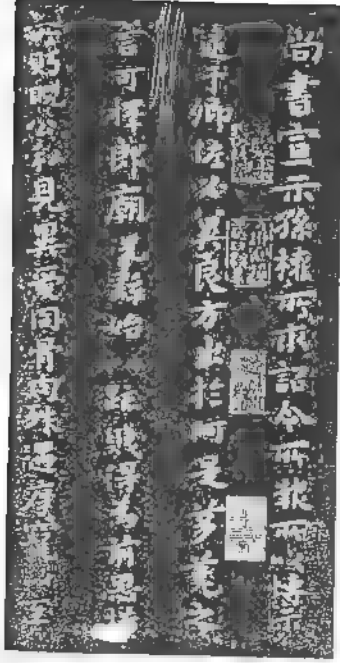 尚書宣示孫權所求詔令所報所以博示
逮于卿佐必冀良方出於阿是芻蕘之
言可擇郎廟況繇始以疏賤得為前恩
所盱睨公私見異愛同骨肉殊遇厚寵以至